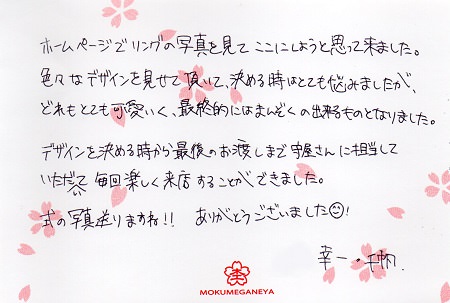 ホームページでリングの写真を見てここにしようと思って来ました。
色々なデザインを見せて頂いて、決める時はとても悩みましたが、
どれもとても可愛いく、最終的にはまんぞくの出来るものとなりました。
デザインを決める時から最後のお渡しまで守屋さんに担当して
いただいて、毎回楽しく来店することができました。
式の写真送りますね!! ありがとうございました☺!
幸一・千帆.
MOKUMEGANEYA